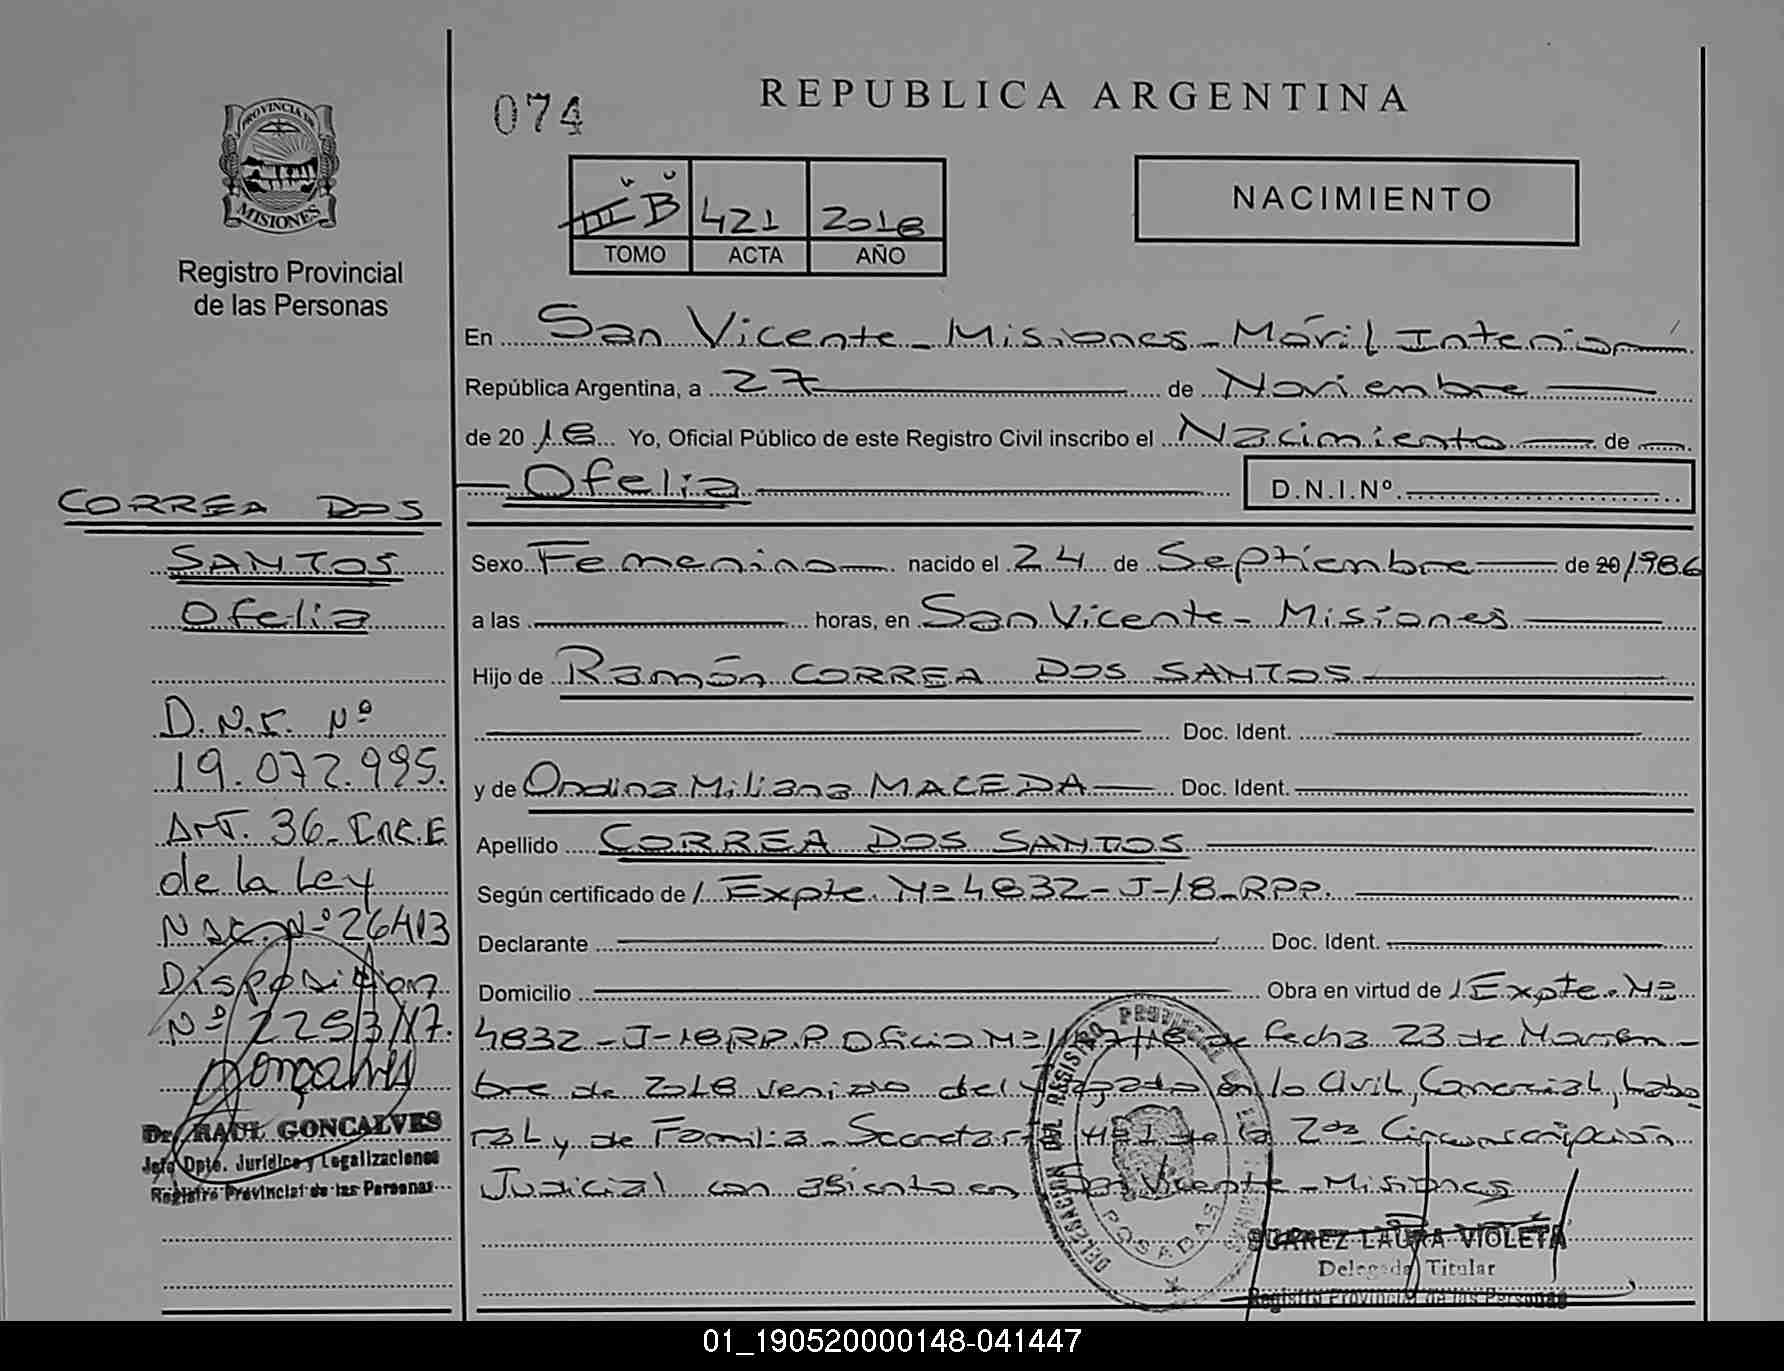 PROVINCIA DE
MISIONES
Registro Provincial
de las Personas
CORREA DOS
SANTOS
Ofelia
D.N.I. Nº
19.072.995.
Art. 36. Inc. E
de la Ley
Nac. Nº 26413
Disposicion
Nº 2253/17.
Dr. RAUL GONCALVES
Jefe Dpto. Jurídico y Legalizaciones
Registro Provincial de las Personas
074
REPUBLICA ARGENTINA
B 421 2018
TOMO ACTA AÑO
NACIMIENTO
En San Vicente - Misiones - Móvil Interior
República Argentina, a 27 de Noviembre
de 2018 Yo, Oficial Público de este Registro Civil inscribo el Nacimiento de
Ofelia D.N.I.Nº
Sexo Femenino nacido el 24 de Septiembre de 20 1986
a las horas, en San Vicente - Misiones
Hijo de Ramón CORREA DOS SANTOS
Doc. Ident.
y de Ondina Miliana MACEDA Doc. Ident.
Apellido CORREA DOS SANTOS
Según certificado de / Expte. Nº 4832-J-18-RPP.
Declarante Doc. Ident.
Domicilio Obra en virtud de / Expte. Nº
4832-J-18 RP.P Oficio Nº de fecha 23 de Noviem-
bre de 2018 venido del Juzgado en lo Civil, Comercial, Labo
ral y de Familia - Secretaría Nº 1 de la 2da Circunscripción
Judicial con asiento en San Vicente - Misiones
DELEGACION DEL REGISTRO PROVINCIAL DE LAS PERSONAS
POSADAS
SUAREZ LAURA VIOLETA
Delegada Titular
Registro Provincial de las Personas
01_190520000148-041447